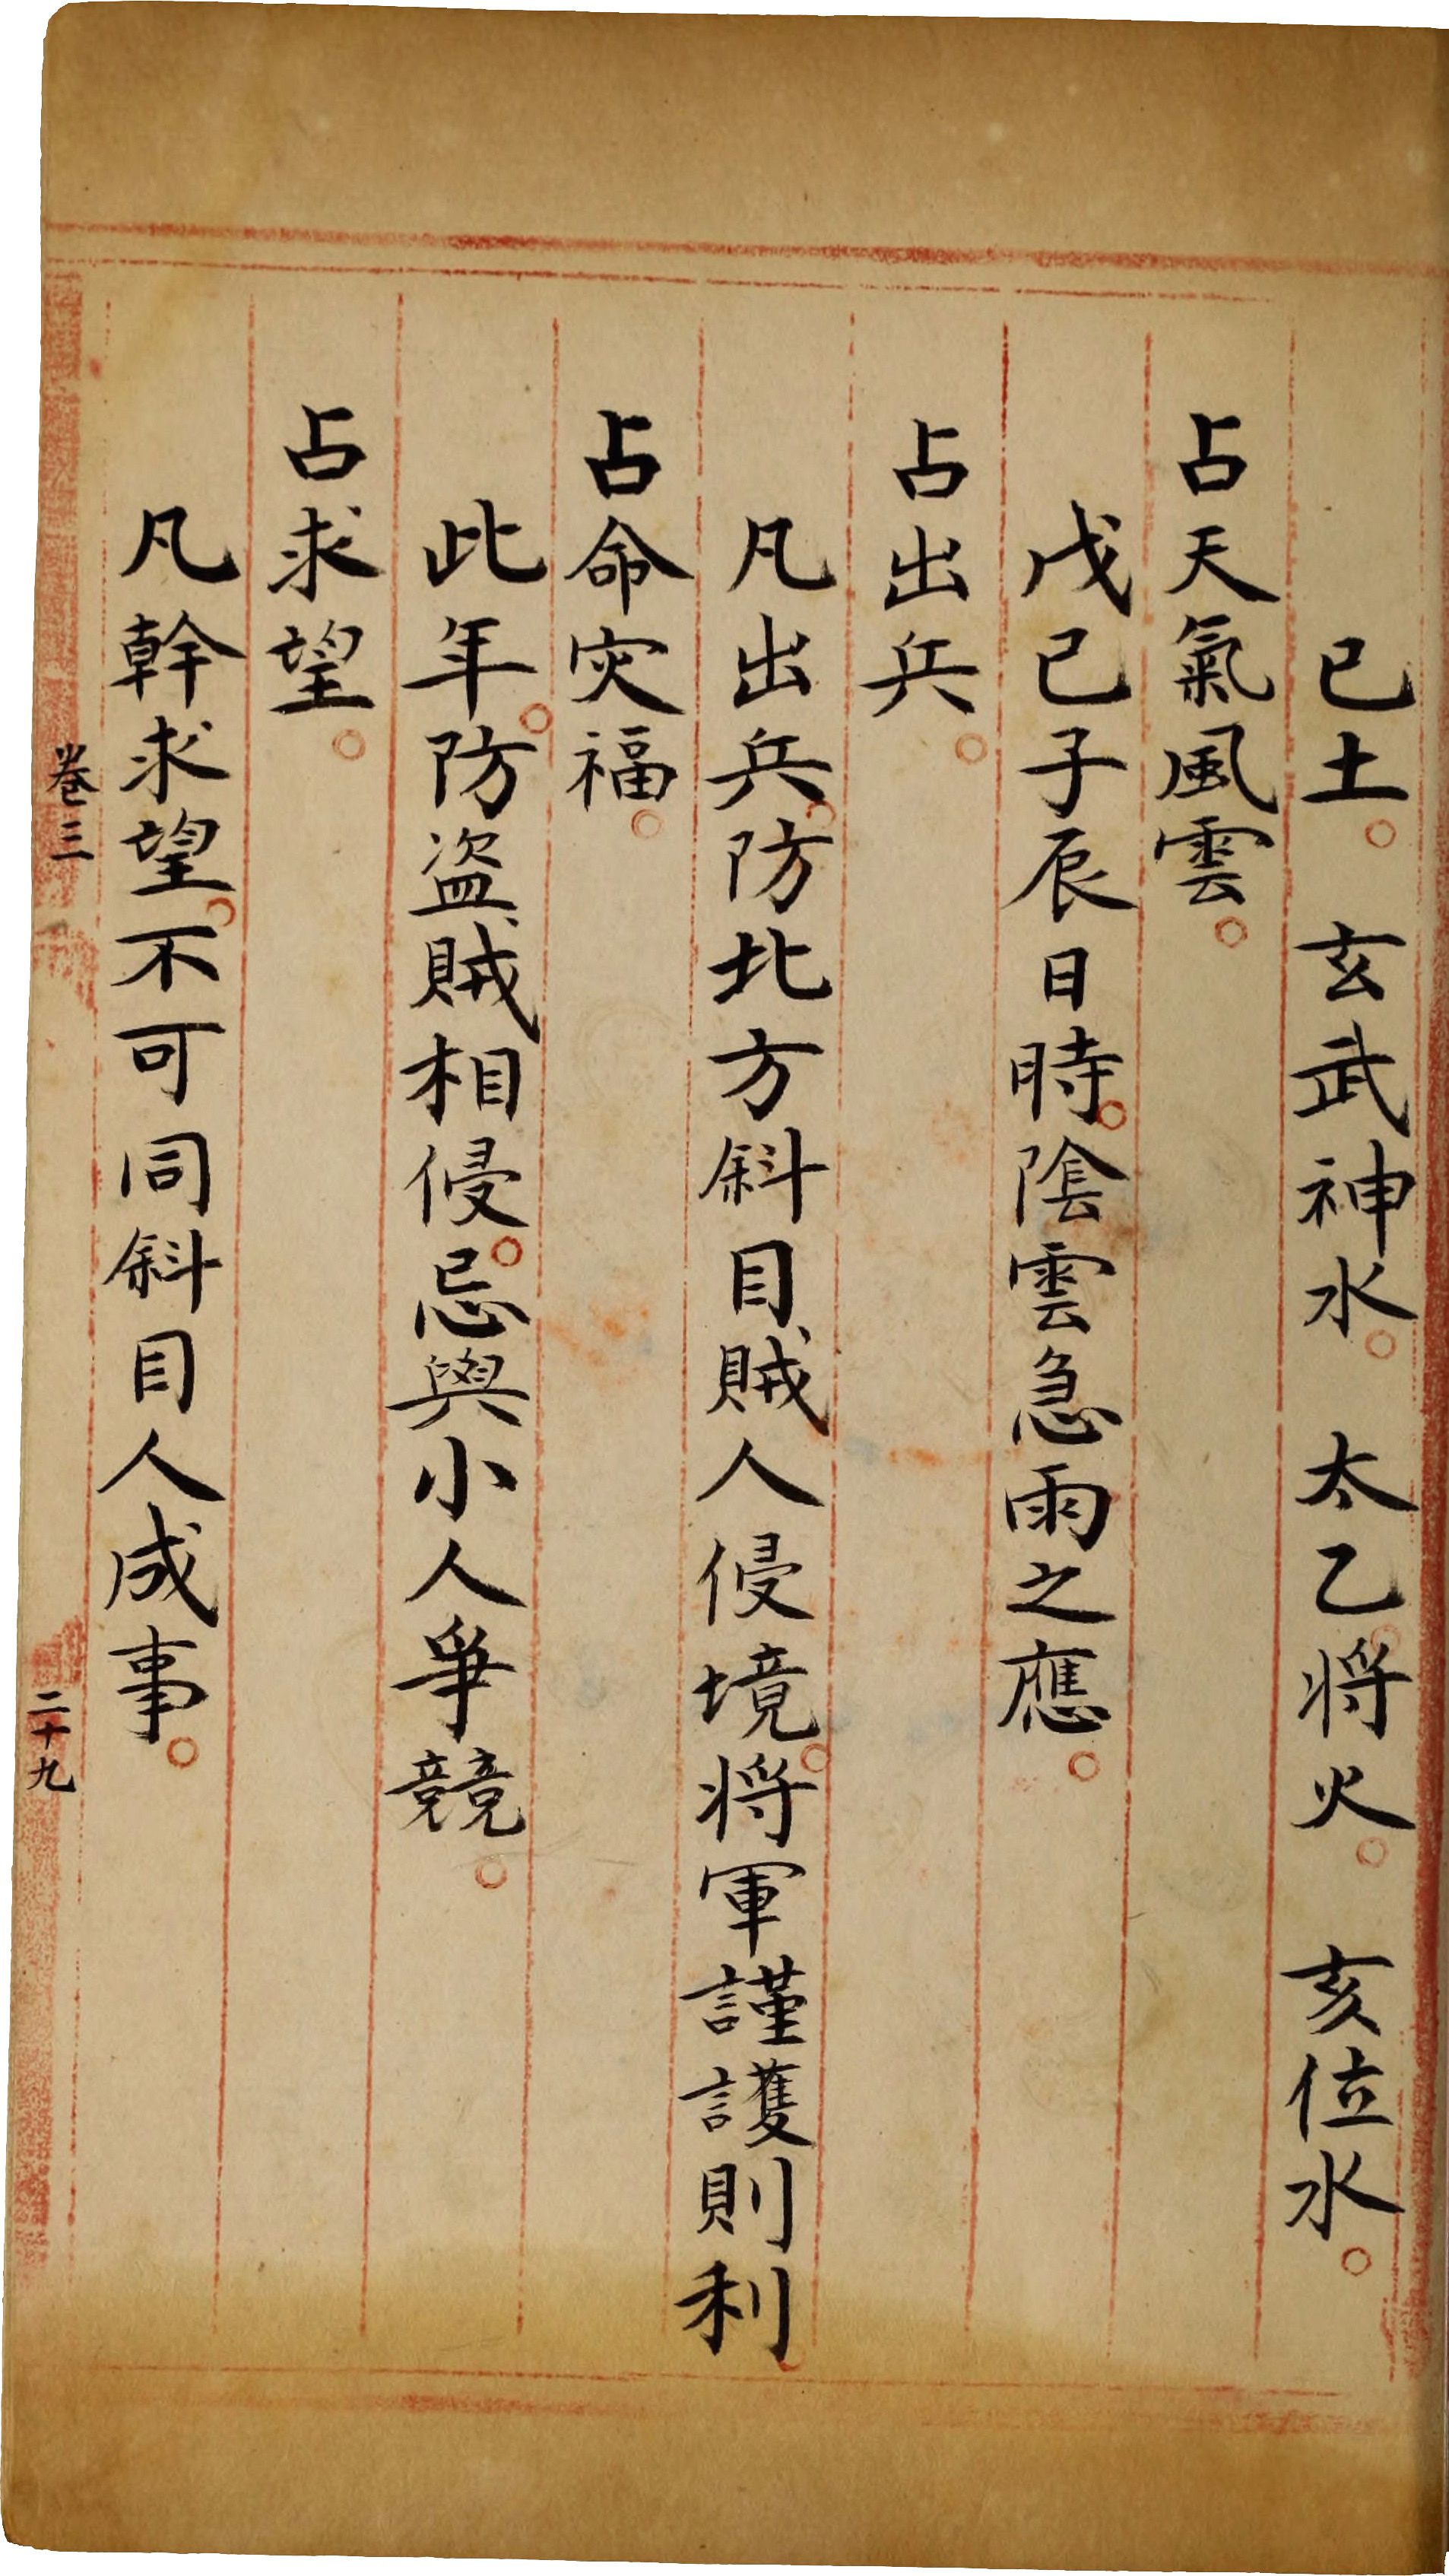 已土。玄武神水。太乙。将火。亥位水。
占天氣風雲。
戊已子辰日時。陰雲急雨之應。
占出兵。
凡出兵。防北方斜目賊人侵境。将軍謹護則利。
占命灾福。
此年。防盗賊相侵。忌與小人爭競。
占求望。
凡幹求望。不可同斜目人成事。
卷三
二十九